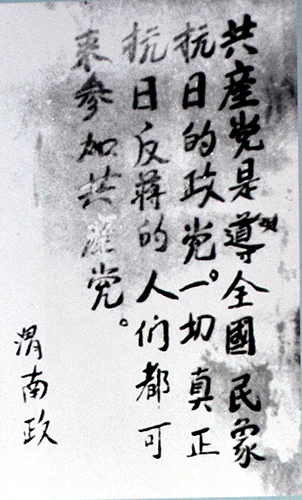 共產党是導全國民衆
抗日的政党。一切真正
抗日反蔣的人们都可
来参加共產党。
渭南政